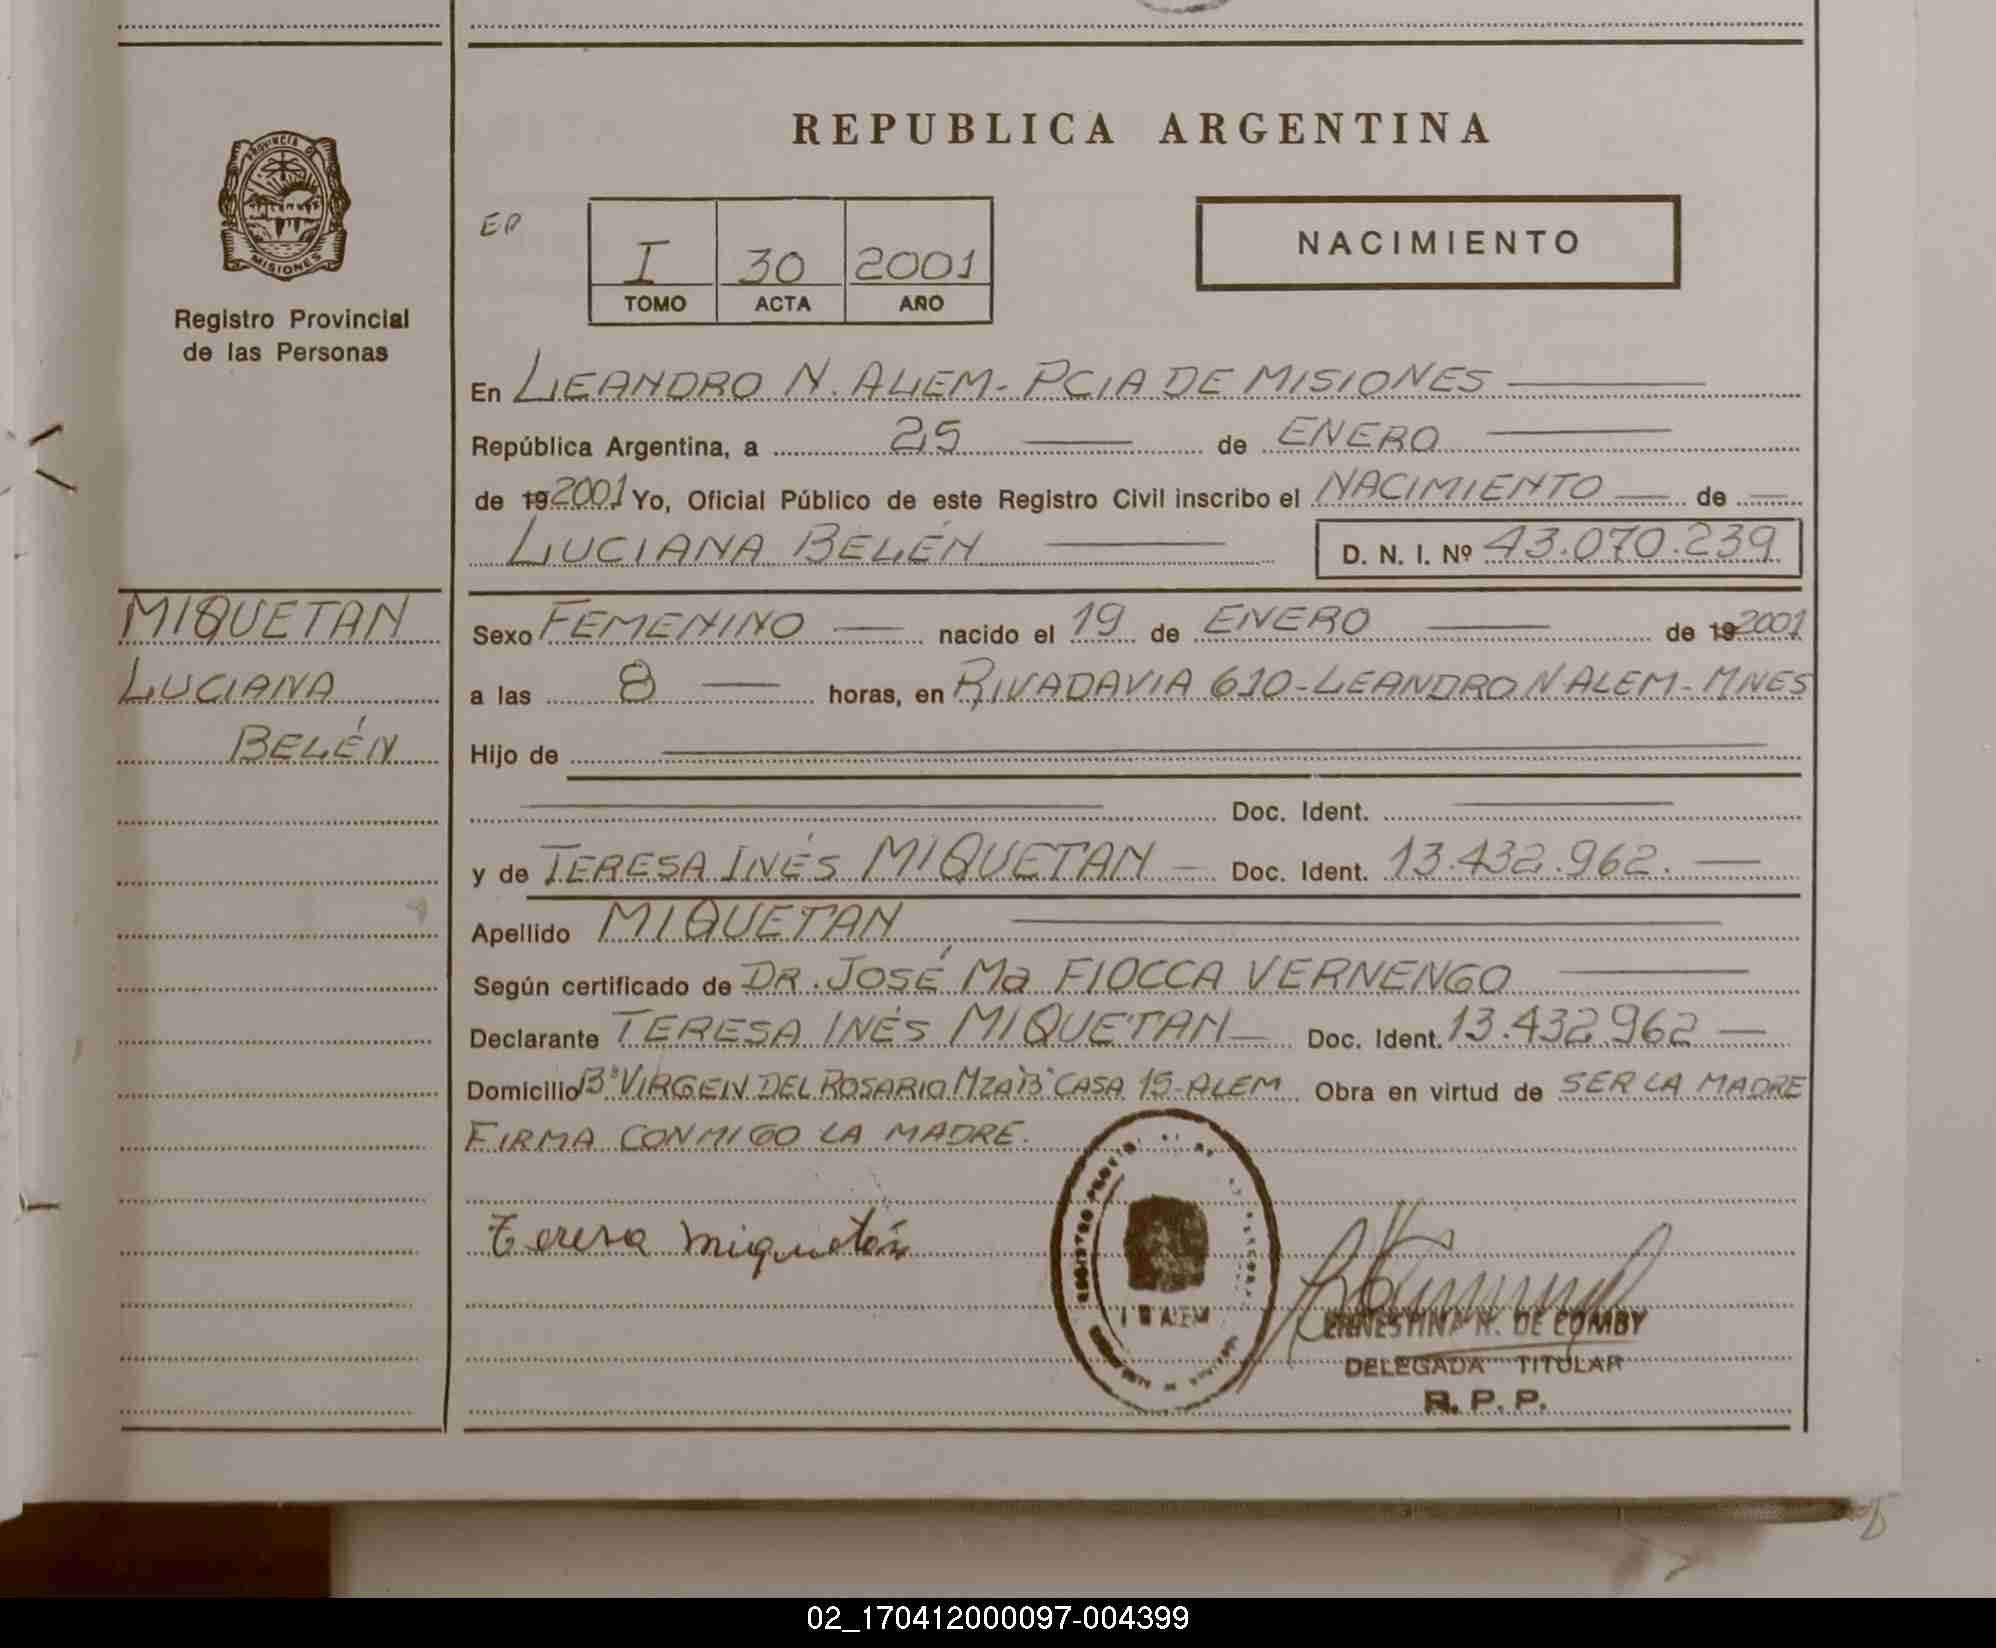 REPUBLICA ARGENTINA
PROVINCIA DE
MISIONES
Registro Provincial
de las Personas
EP
I 30 2001
TOMO ACTA AÑO
NACIMIENTO
En LEANDRO N. ALEM - PCIA DE MISIONES
República Argentina, a 25 de ENERO
de 19 2001 Yo, Oficial Público de este Registro Civil inscribo el NACIMIENTO de
LUCIANA BELÉN D. N. I. Nº 43.070.239
MIQUETAN
LUCIANA
BELÉN
Sexo FEMENINO nacido el 19 de ENERO de 19 2001
a las 8 horas, en RIVADAVIA 610 - LEANDRO N ALEM - MNES
Hijo de
Doc. Ident.
y de TERESA INÉS MIQUETAN Doc. Ident. 13.432.962.
Apellido MIQUETAN
Según certificado de DR. JOSÉ Ma FIOCCA VERNENGO
Declarante TERESA INÉS MIQUETAN Doc. Ident. 13.432.962
Domicilio Bº VIRGEN DEL ROSARIO MZA "B" CASA 15 - ALEM Obra en virtud de SER LA MADRE
FIRMA CONMIGO LA MADRE.
Teresa Miquetán
REGISTRO
ERNESTINA N. DE COMBY
DELEGADA TITULAR
R. P. P.
02_170412000097-004399